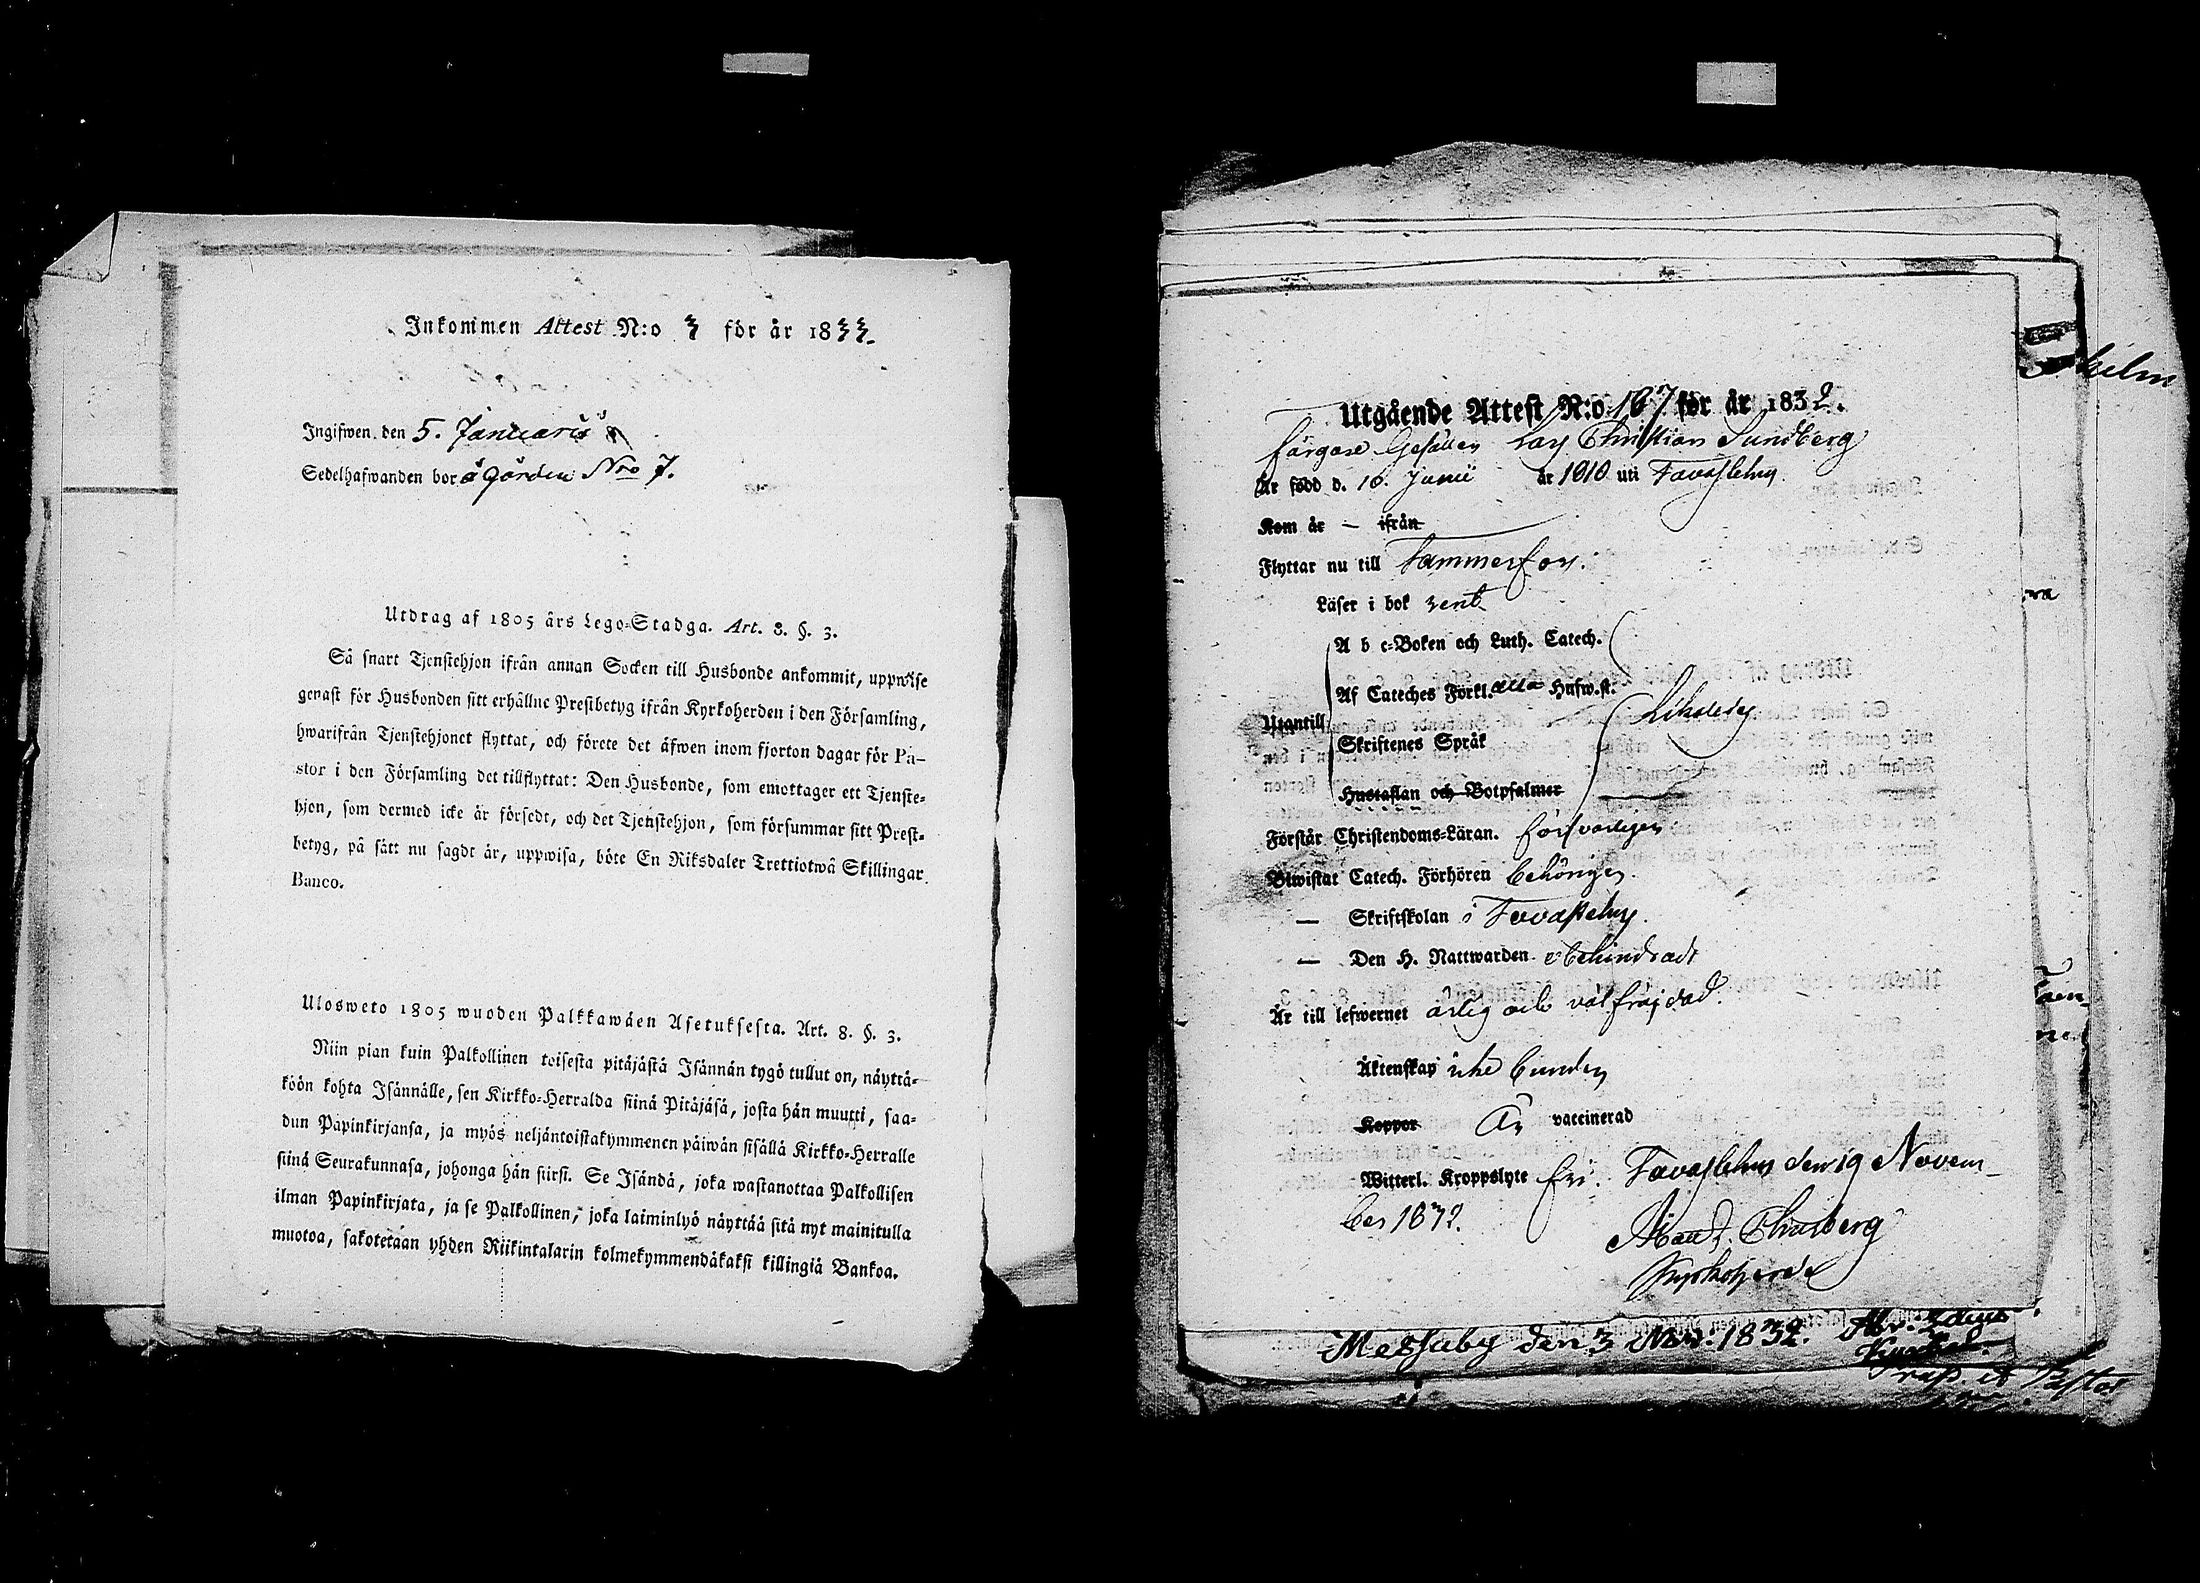 Inkommen Attest N:o 3 för år 1833.
Ingifwen den 5. Januarii
Sedelhafwanden bor å gården Nro 7.
Utdrag af 1805 års Lego-Stadga. Art. 8. §. 3.
Så snart Tjenstehjon ifrån annan Socken till Husbonde ankommit, uppwise
genast för Husbonden sitt erhållne Prestbetyg ifrån Kyrkoherden i den Församling,
hwarifrån Tjenstehjonet flyttat, och förete det äfwen inom fjorton dagar för Pa-
stor i den Församling det tillflyttat: Den Husbonde, som emottager ett Tjenste-
hjon, som dermed icke är försedt, och det Tjenstehjon, som försummar sitt Prest-
betyg, på sätt nu sagdt är, uppwisa, böte En Riksdaler Trettiotwå Skillingar
Banco.
Ulosweto 1805 wuoden Palkkawäen Asetuksesta. Art. 8. §. 3.
Niin pian kuin Palkollinen toisesta pitäjästä Isännän tygö tullut on, näyttä-
köön kohta Isännälle, sen Kirkko-Herralda siinä Pitäjäsä, josta hän muutti, saa-
dun Papinkirjansa, ja myös neljäntoistakymmenen päiwän sisällä Kirkko-Herralle
siinä Seurakunnasa, johonga hän siirsi. Se Isändä, joka wastanottaa Palkollisen
ilman Papinkirjata, ja se Palkollinen, joka laiminlyö näyttää sitä nyt mainitulla
muotoa, sakotetaan yhden Riikintalarin kolmekymmendäkaksi killingiä Bankoa.
Utgående Attest N:o 167 för år 1832.
Färgare Gesällen Lars Christian Sundberg
Är född d. 16. Junii år 1810 uti Tavastehus
Kom år — ifrån
Flyttar nu till Tammerfors.
Läser i bok rent
A b c-Boken och Luth. Catech.
Af Cateches Förkl. alla Hufw.st.
Utantill
Skriftenes Språk
Hustaflan och Botpsalmer
Förstår Christendoms-Läran. försvarligen
Biwistat Catech. Förhören behörigen.
— Skriftskolan i Tavastehus.
— Den H. Nattwarden obehindradt
Är till lefwernet ärlig och välfräjdad.
Äktenskap icke bunden
Koppor Är vaccinerad
Witterl. Kroppslyte fri. Tavastehus den 19 Novem-
ber 1832.
Thunberg
Kyrkoherde
Messuby den 3 Nov: 1832.
Præp. et Pastor